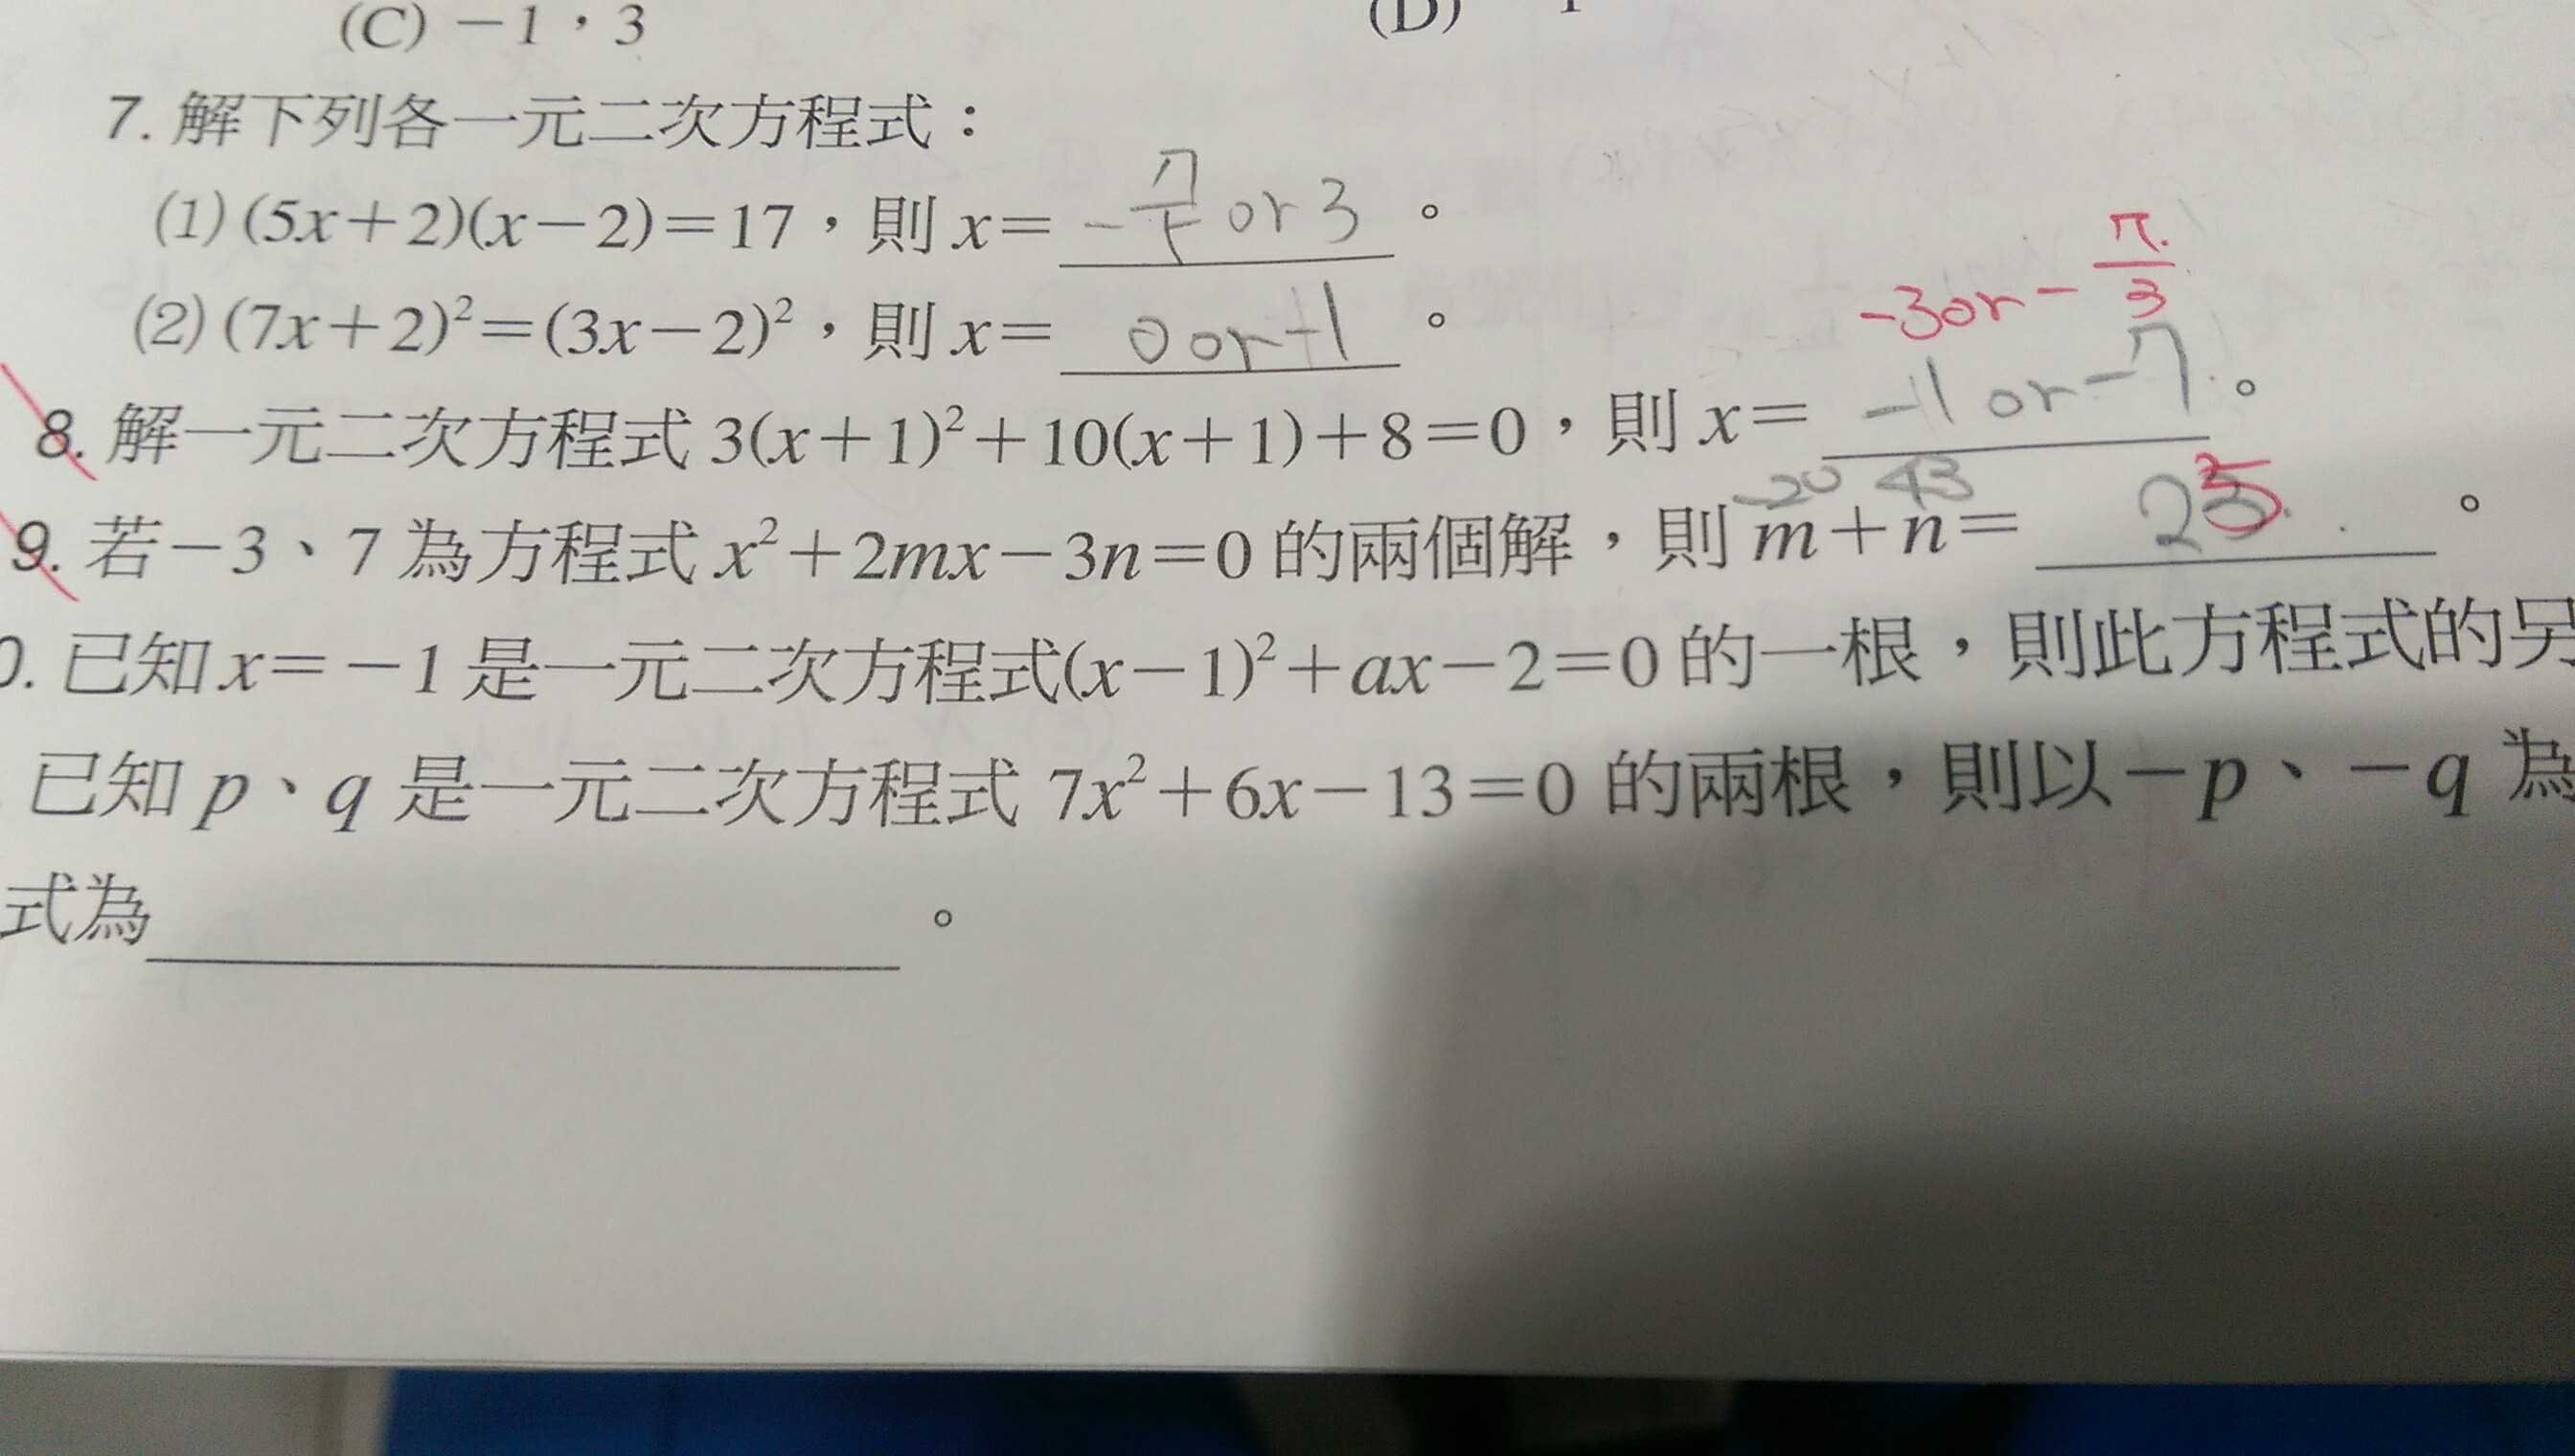 (C) －1，3
(D)
7. 解下列各一元二次方程式：
(1) (5x＋2)(x－2)＝17，則 x＝ -7/5 or 3 。
(2) (7x＋2)²＝(3x－2)²，則 x＝ 0 or -1 。
-3 or -7/3
8. 解一元二次方程式 3(x＋1)²＋10(x＋1)＋8＝0，則 x＝ -11 or -7 。
-20 43
9. 若－3、7 為方程式 x²＋2mx－3n＝0 的兩個解，則 m＋n＝ 25 。
0. 已知 x＝－1 是一元二次方程式(x－1)²＋ax－2＝0 的一根，則此方程式的另
已知 p、q 是一元二次方程式 7x²＋6x－13＝0 的兩根，則以－p、－q 為
式為 。